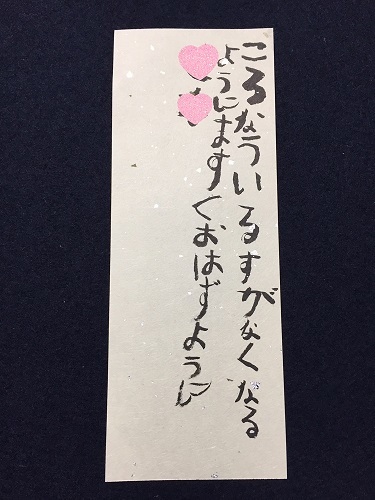 ころなういるすがなくなる
ようにますくおはずように